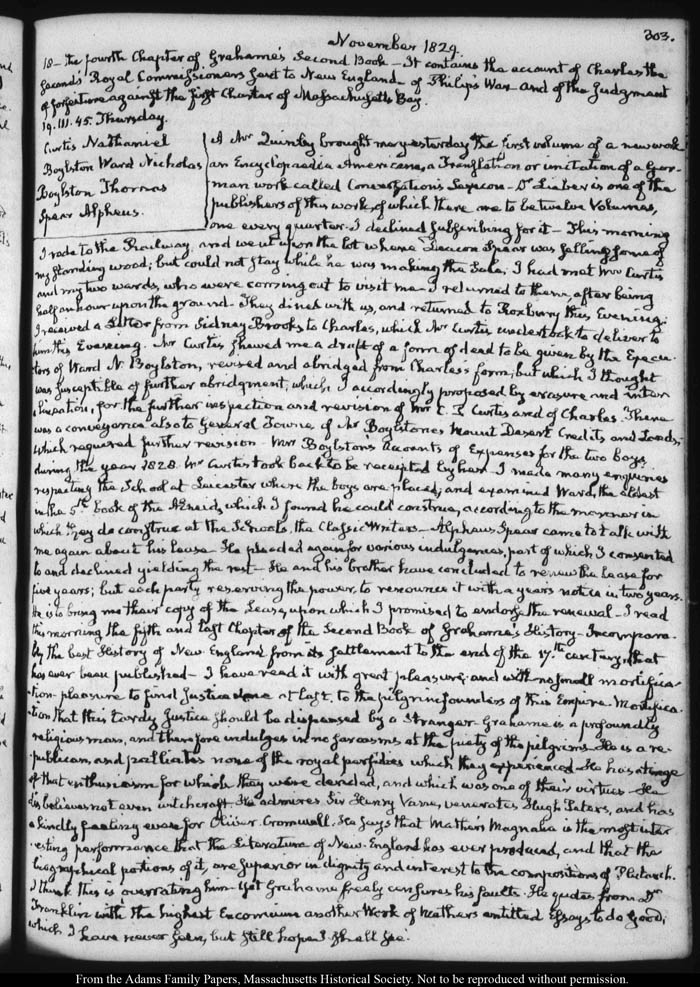 November 1829.
303.
18 — the fourth Chapter of Grahame's Second Book — It contains the account of Charles the
Second's Royal Commissioners sent to New England of Philip's War and of the Judgment
of forfeiture against the first Charter of Massachusetts Bay.
19. III. 45. Thursday.
Curtis Nathaniel
Boylston Ward Nicholas
Boylston Thomas
Spear Alpheus.
A Mr Quimby brought me yesterday the first volume of a new work
an Encyclopaedia Americana, a Translation or imitation of a Ger-
man work called Conversations Lexicon — Dr Lieber is one of the
publishers of this work, of which there are to be twelve Volumes,
one every quarter. I declined subscribing for it — This morning
I rode to the Railway, and went upon the lot where Deacon Spear was selling some of
my standing wood; but could not stay while he was making the Sale; I had met Mr Curtis
and my two wards, who were coming out to visit me — I returned to them, after being
half an hour upon the ground — They dined with us, and returned to Roxbury this Evening.
I received a Letter from Sidney Brooks to Charles, which Mr Curtis undertook to deliver to
him this Evening. Mr Curtis shewed me a draft of a form of deed to be given by the Execu-
tors of Ward N. Boylston, revised and abridged from Charles's form, but which I thought
was susceptible of further abridgment, which I accordingly proposed by erasure and inter
lineation, for the further inspection and revision of Mr C. P. Curtis and of Charles. There
was a conveyance also to General Towne of Mr Boylston's Mount Desert Credits and Lands,
which required further revision — Mrs Boylston's Accounts of Expenses for the two boys
during the year 1828. Mr Curtis took back to be receipted by her — I made many enquiries
respecting the School at Lancaster where the boys are placed; and examined Ward, the oldest
in the 5th book of the AEneid, which I found he could construe, according to the manner in
which they do construe at the Schools, the Classic Writers — Alpheus Spear came to talk with
me again about his lease — He pleaded again for various indulgences, part of which I consented
to and declined yielding the rest — He and his brother have concluded to renew the lease for
five years; but each party reserving the power, to renounce it with a years notice in two years.
He is to bring me their copy of the Lease, upon which I promised to endorse the renewal — I read
this morning the fifth and last Chapter of the Second Book of Grahame's History — Incompara-
bly the best History of New England from its settlement to the end of the 17th century, that
has ever been published — I have read it with great pleasure, and with no small mortifica-
tion — pleasure to find Justice done at last, to the pilgrim founders of this Empire. Mortifica-
tion that this tardy Justice should be dispensed by a Stranger. Grahame is a profoundly
religious man, and therefore indulges in no sarcasms at the piety of the pilgrims. He is a re-
publican, and palliates none of the royal perfidies which they experienced. He has a tinge
of that enthusiasm for which they were derided, and which was one of their virtues — He
disbelieves not even witchcraft. He admires Sir Henry Vane, venerates Hugh Peters, and has
a kindly feeling even for Oliver Cromwell. He says that Mather's Magnalia is the most inter-
esting performance that the Literature of New England has ever produced, and that the
biographical portions of it, are superior in dignity and interest to the compositions of Plutarch.
I think this is overrating him — Yet Grahame freely censures his faults. He quotes from Dr
Franklin with the highest Encomium another Work of Mather's entitled Essays to do Good,
which I have never seen, but still hope I shall see.
From the Adams Family Papers, Massachusetts Historical Society. Not to be reproduced without permission.